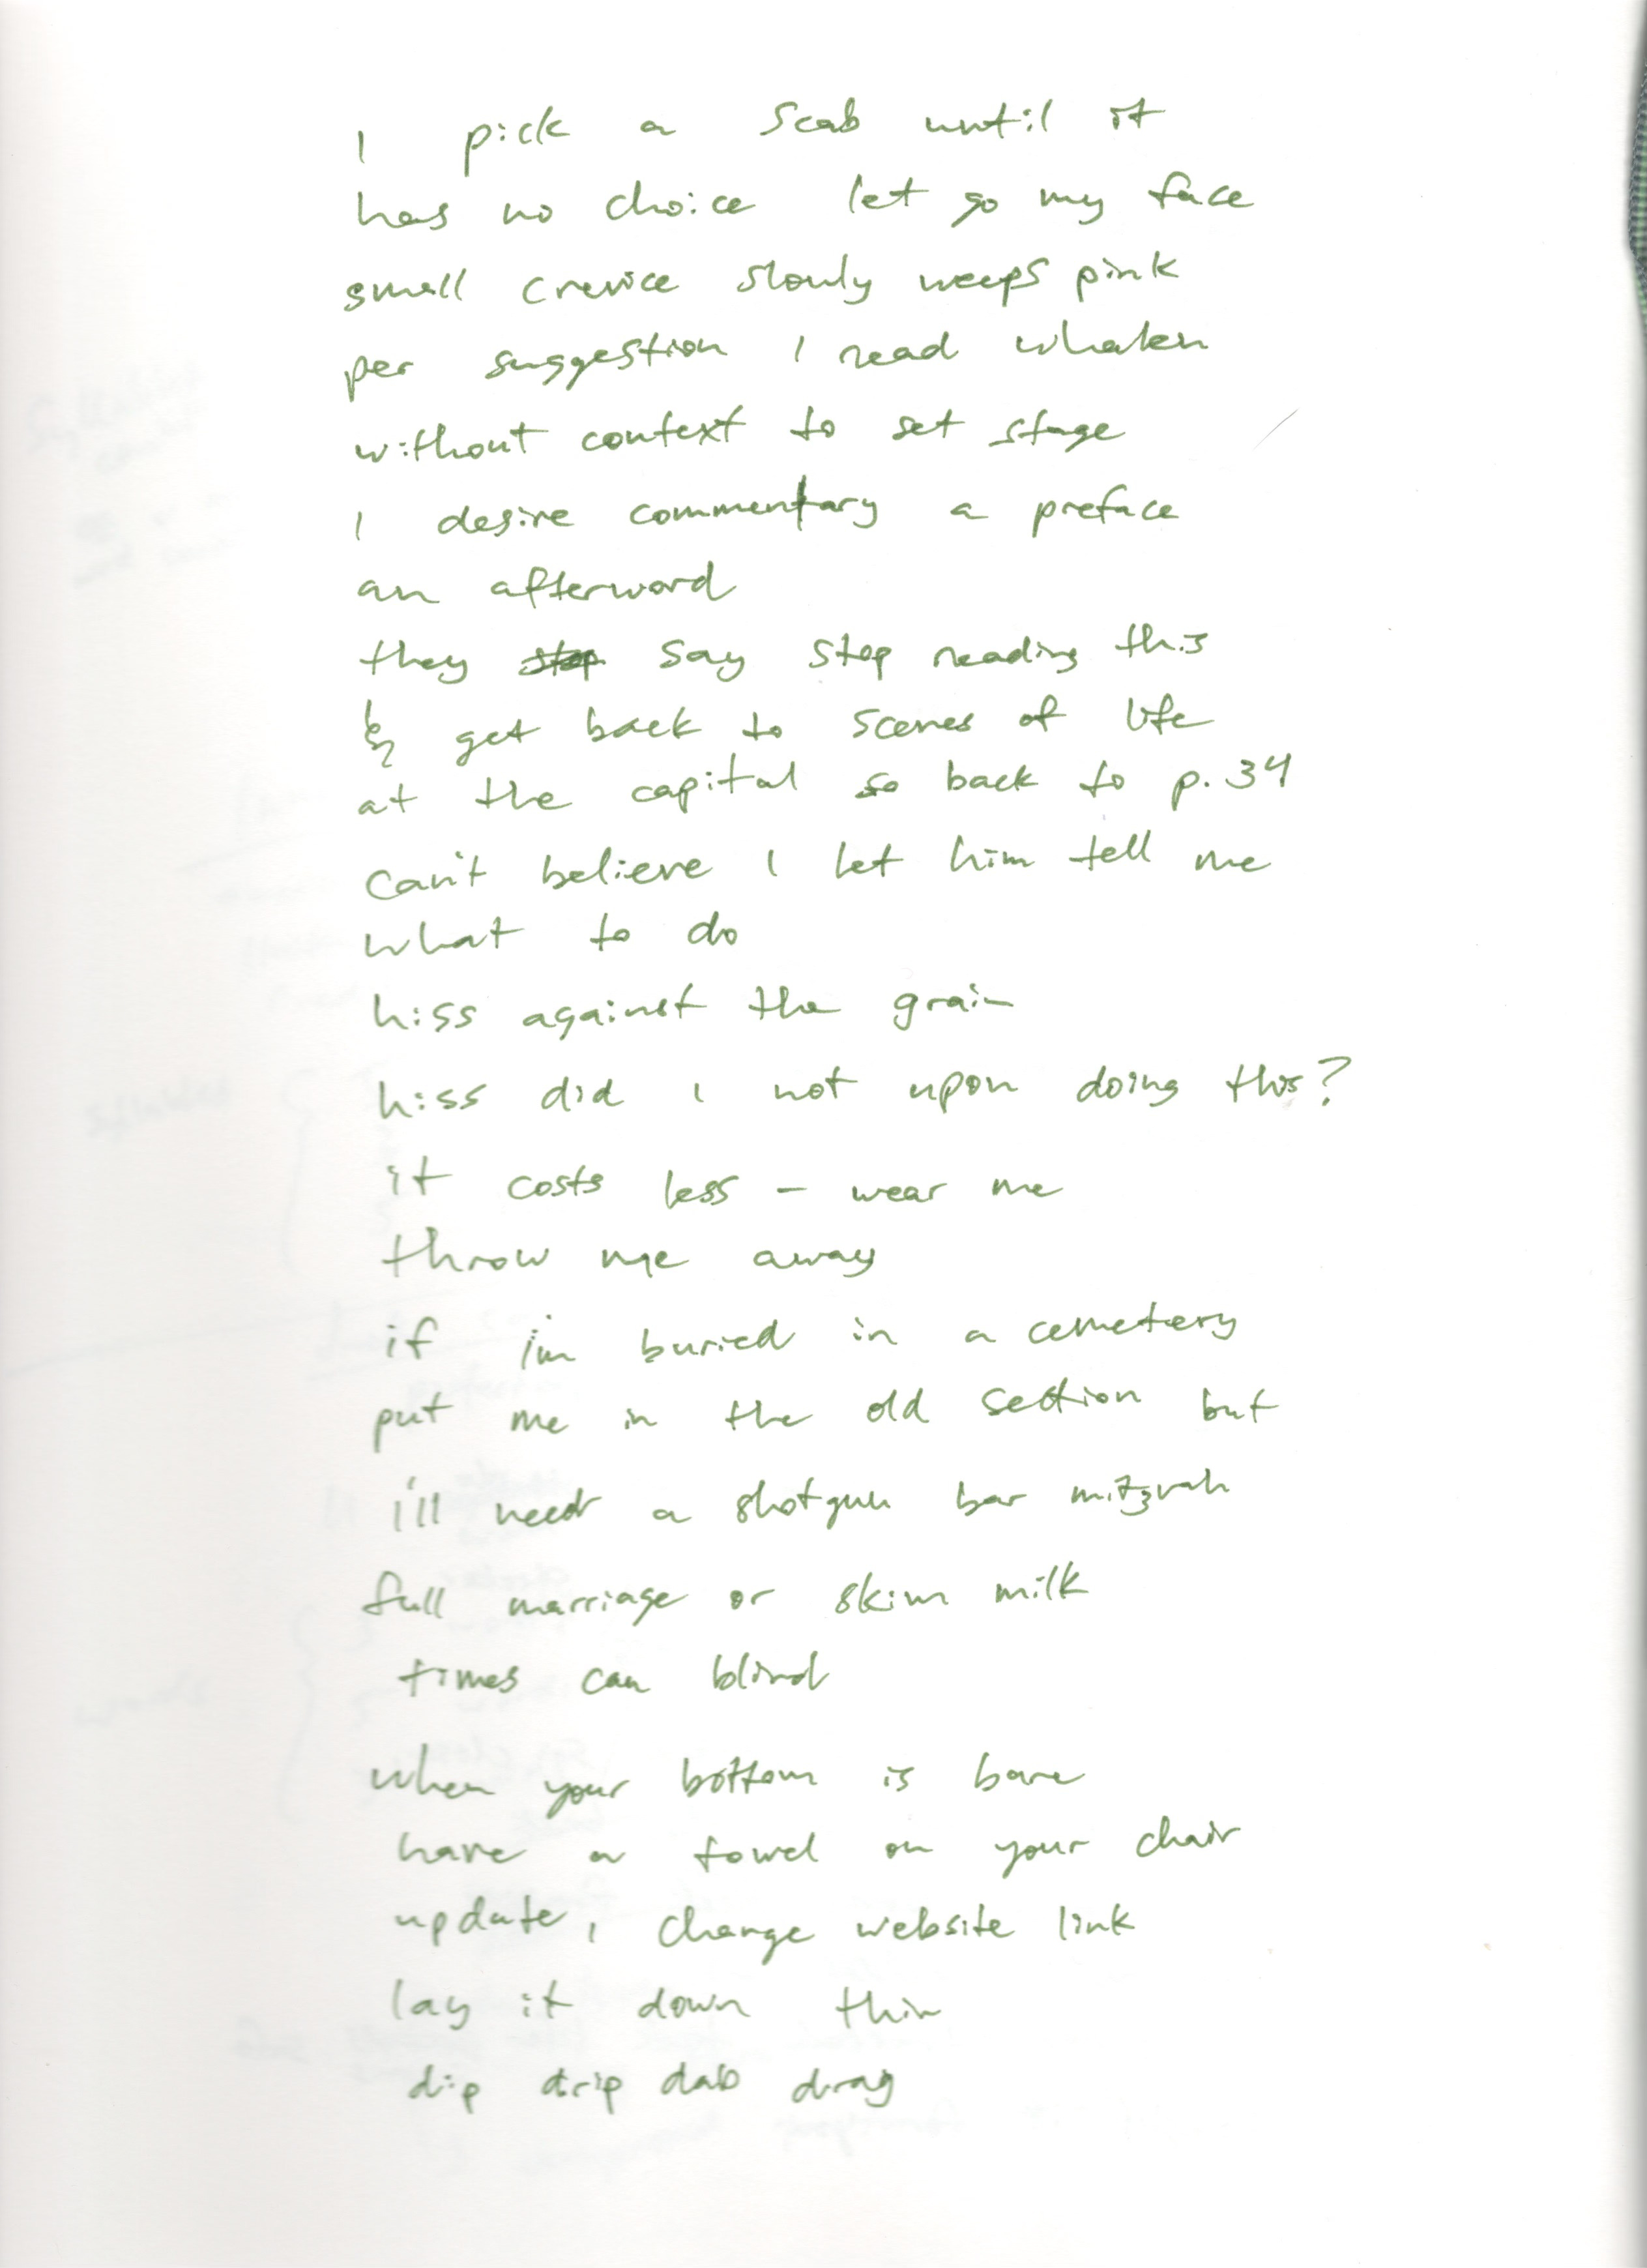 I pick a scab until it
has no choice let go my face
small crevice slowly weeps pink
per suggestion I read whalen
without context to set stage
I desire commentary a preface
an afterword
they stop say stop reading this
& get back to scenes of life
at the capital so back to p. 34
can't believe I let him tell me
what to do
hiss against the grain
hiss did I not upon doing this?
it costs less – wear me
throw me away
if i'm buried in a cemetery
put me in the old section but
i'll need a shotgun bar mitzvah
full marriage or skim milk
times can blind
when your bottom is bare
have a towel on your chair
update, change website link
lay it down thin
dip drip dab drag